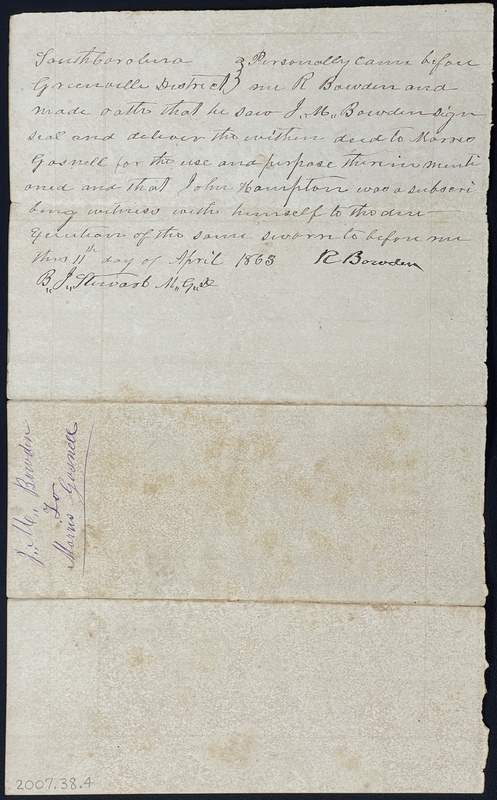 South Carolina } Personally came before
Greenville District } me R Bowden and
made oath that he saw J,, M,, Bowden sign
seal and deliver the within deed to Morris
Gosnell for the use and purpose therein menti
oned and that John Hampton was a subscri
bing witness with himself to the due
Execution of the same sworn to before me
this 11th day of April 1863 R Bowden
B,, J,, Stewart M,, G,, D
J,, M,, Bowden
To
Morris Gosnell
2007.38.4